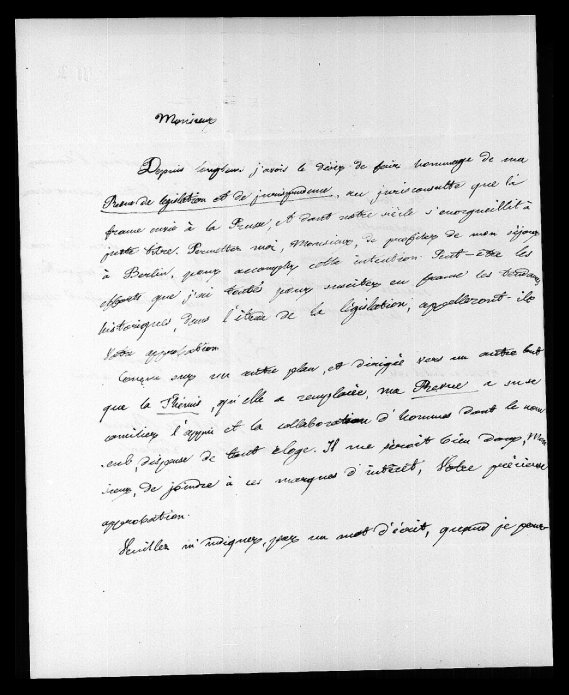 Monsieur
Depuis longtems j'avais le désir de faire hommage de ma
Revue de législation et de jurisprudence, au jurisconsulte que la
france envie à la Prusse, et dont notre siècle s'enorgueillit à
juste titre. Permettez moi, Monsieur, de profiter de mon séjour
à Berlin, pour accomplir cette intention. Peut-être les
efforts que j'ai tentés pour susciter en france les travaux
historiques, dans l'étude de la législation, appelleront-ils
Votre approbation
Conçue sur un autre plan, et dirigée vers un autre but
que la Thémis, qu'elle a remplacée, ma Revue a su se
concilier l'appui et la collaboration d'hommes dont le nom
seul, dispense de tout éloge. Il me seroit bien doux, Mon
sieur, de joindre à ces marques d'intérêt, Votre précieuse
approbation.
Veuillez m'indiquer, par un mot d'écrit, quand je pour-